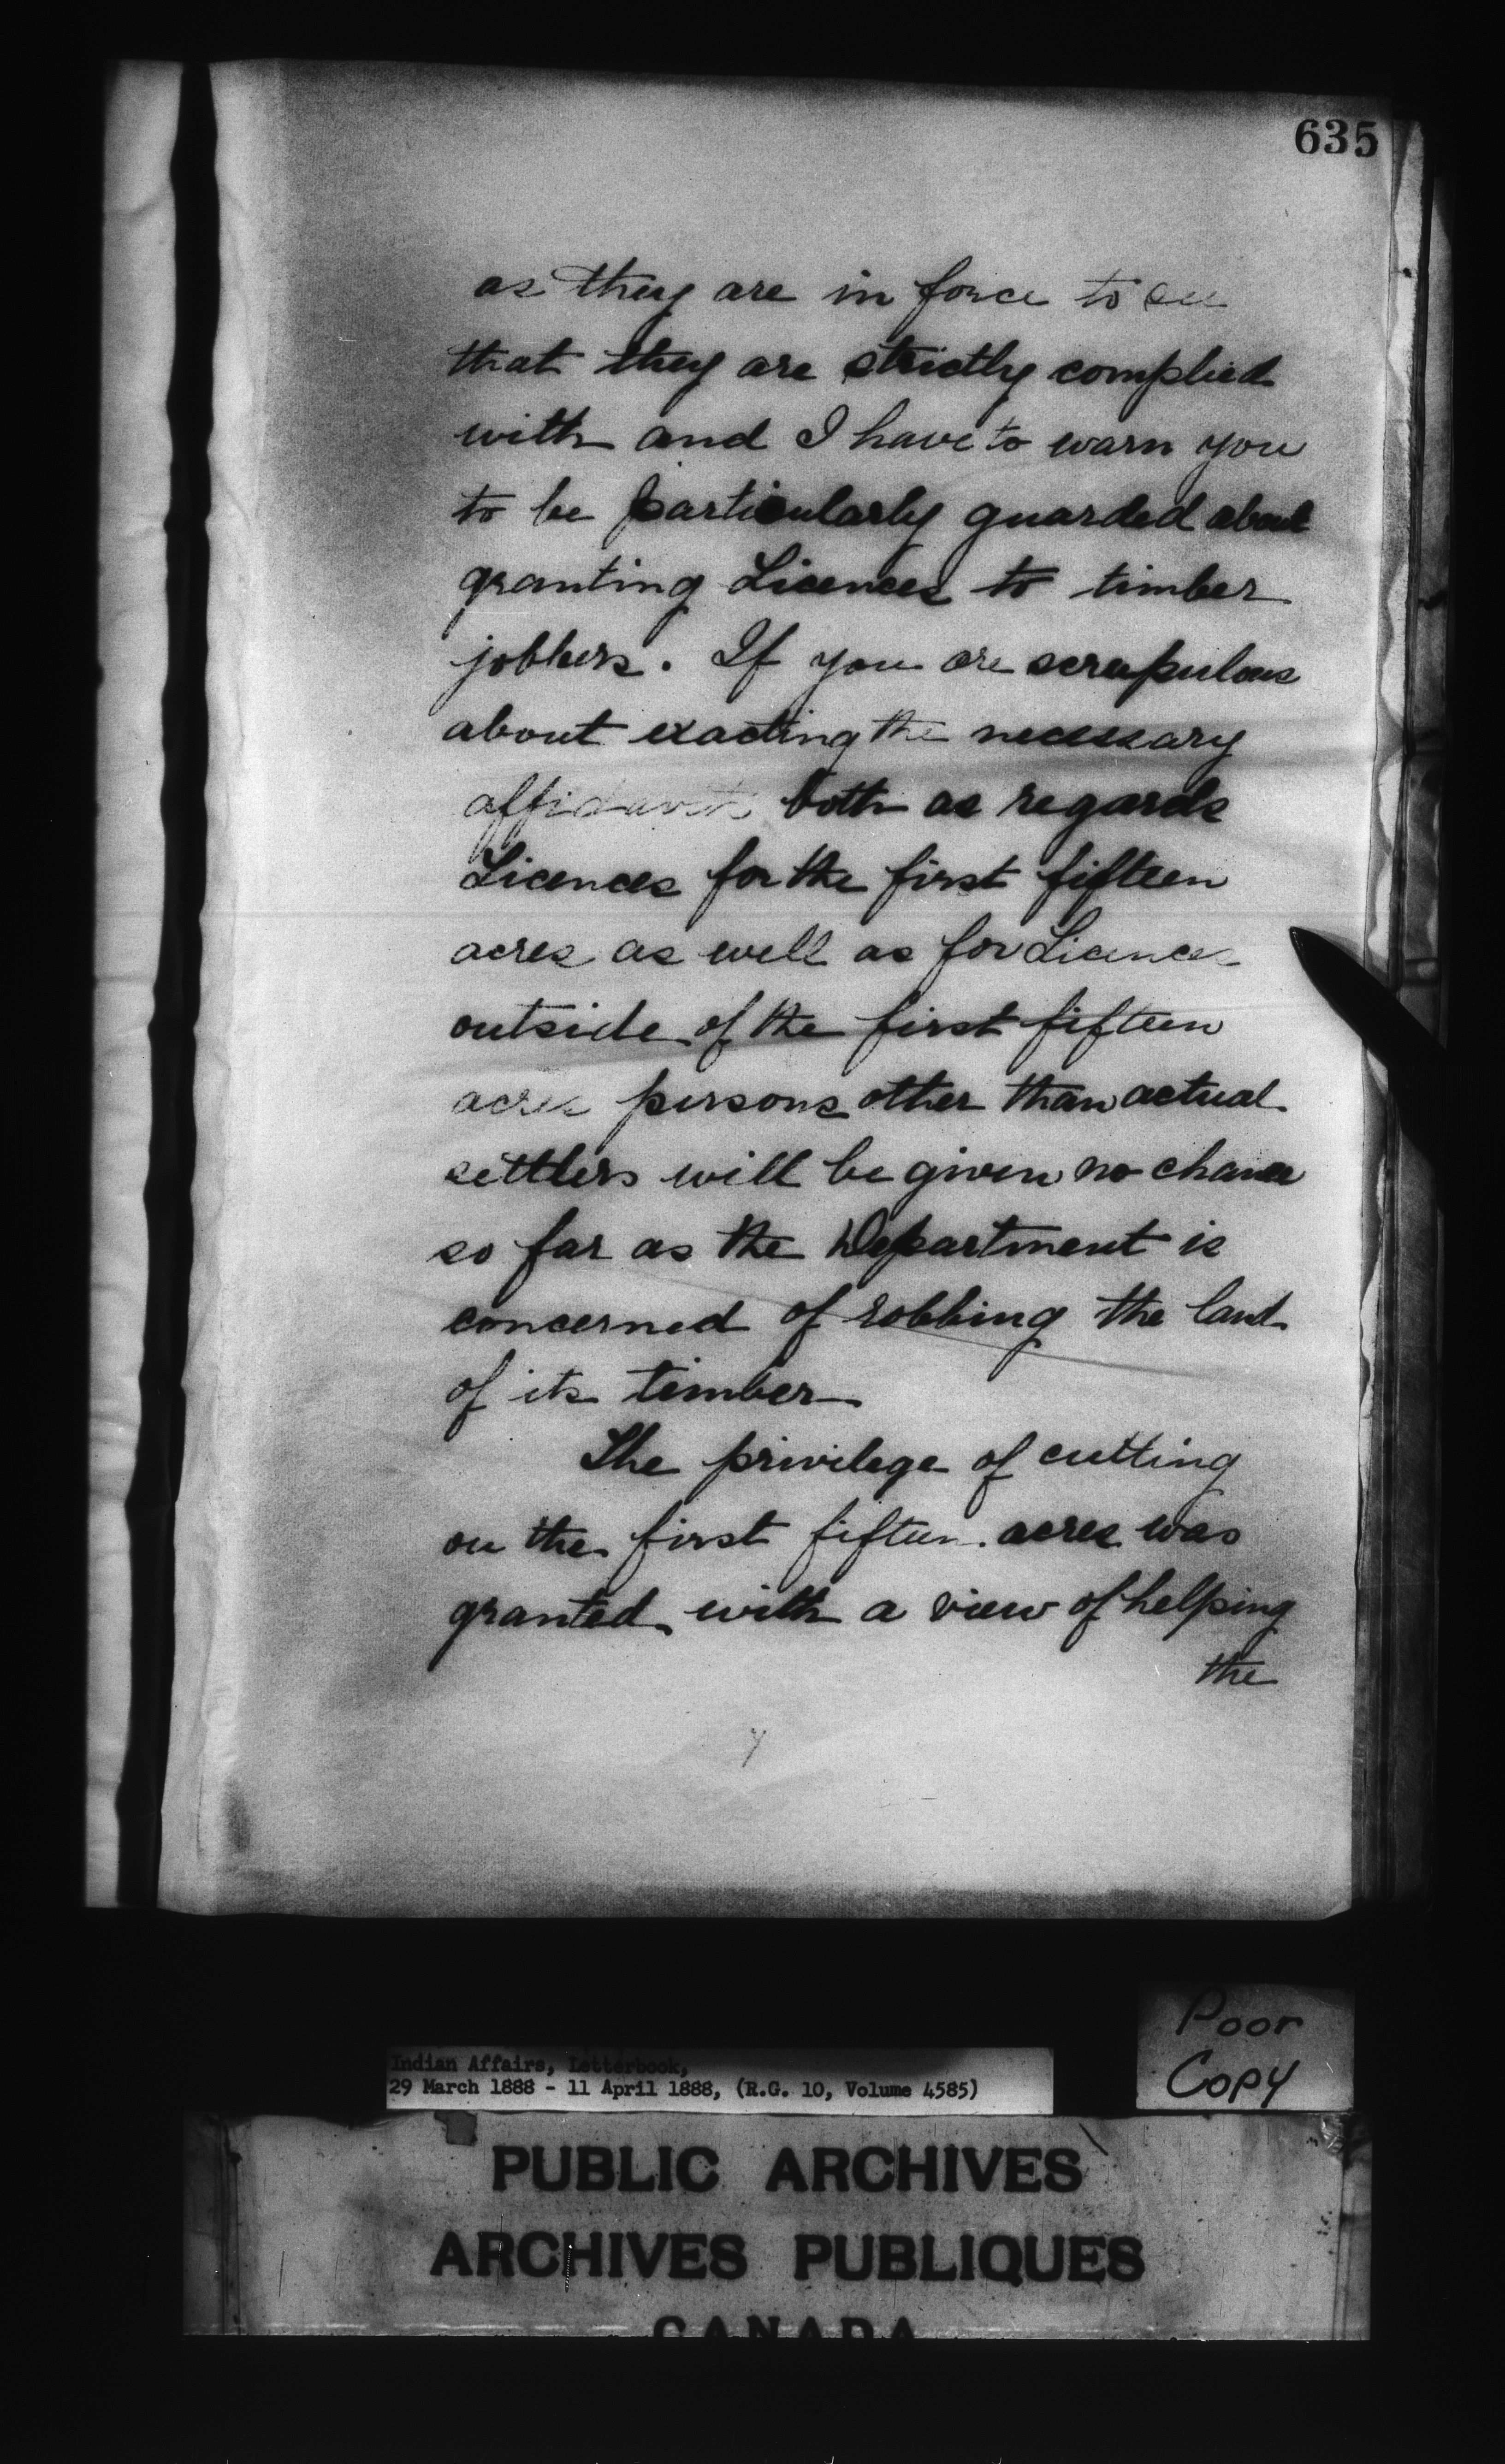 635
as they are in force to see
that they are strictly complied
with and I have to warn you
to be particularly guarded about
granting Licences to timber
jobbers. If you are scrupulous
about exacting the necessary
affidavits both as regards
Licences for the first fifteen
acres as well as for Licences
outside of the first fifteen
acres persons other than actual
settlers will be given no chance
so far as the Department is
concerned of robbing the land
of its timber
The privilege of cutting
on the first fifteen acres was
granted with a view of helping
the
Poor
Copy
Indian Affairs, Letterbook,
29 March 1888 - 11 April 1888, (R.G. 10, Volume 4585)
PUBLIC ARCHIVES
ARCHIVES PUBLIQUES
CANADA